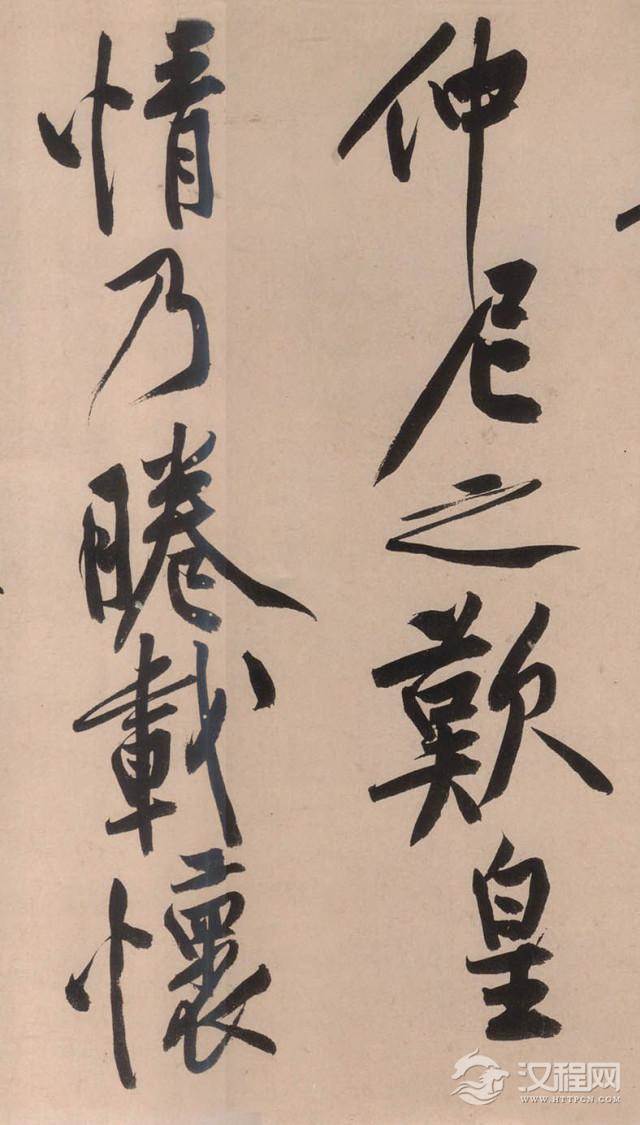 仲尼之歎皇
情乃睠載懷
汉程网
WWW.HTTPCN.COM